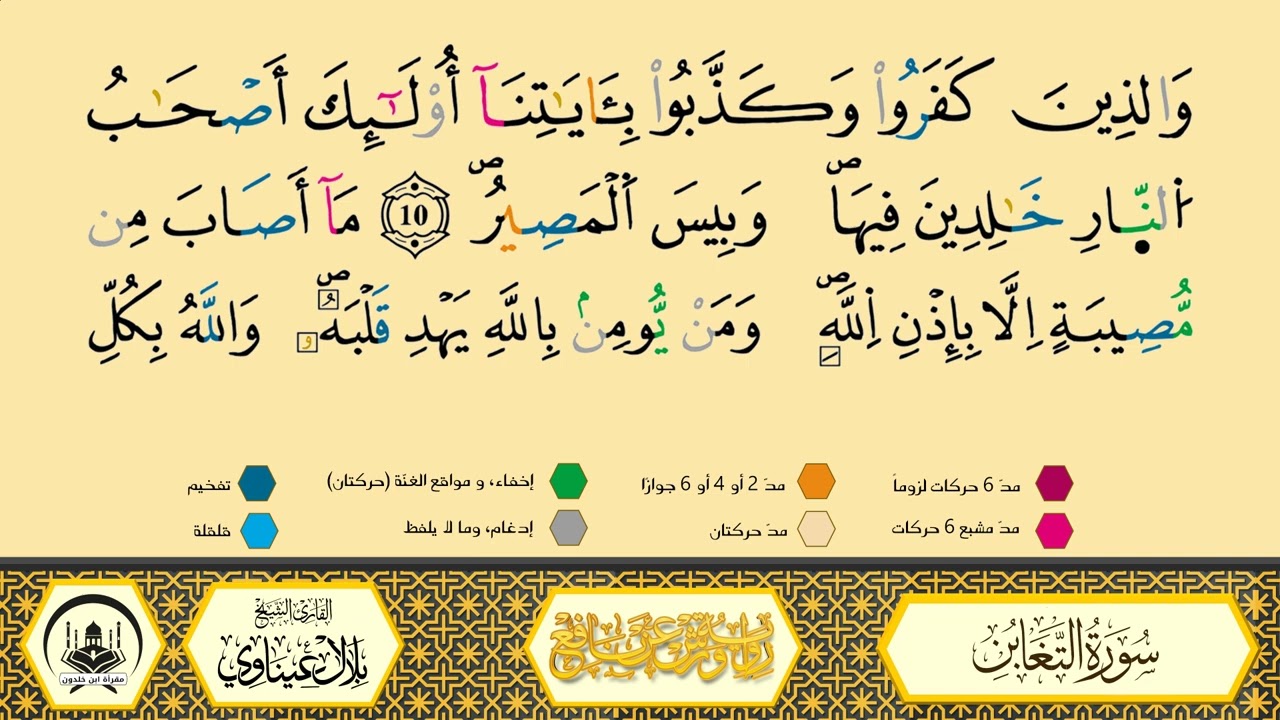 وَالذِينَ كَفَرُواْ وَكَذَّبُواْ بِـَٔايَٰتِنَآ أُوْلَٰٓئِكَ أَصْحَٰبُ
اُ۬لنّ۪ارِ خَٰلِدِينَ فِيهَاۖ وَبِيسَ اَ۬لْمَصِيرُۖ 10 مَآ أَصَابَ مِن
مُّصِيبَةٍ اِلَّا بِإِذْنِ اِ۬للَّهِۖ وَمَنْ يُّومِنۢ بِاللَّهِ يَهْدِ قَلْبَهُۥۖ وَاللَّهُ بِكُلِّ
مدّ 6 حركات لزوماً
مدّ 2 أو 4 أو 6 جوازًا
إخفاء، و مواقع الغنّة (حركتان)
تفخيم
مدّ مشبع 6 حركات
مدّ حركتان
إدغام، وما لا يلفظ
قلقلة
سُورَةُ التَّغَابُنِ
رواية ورش عن نافع
القارئ الشيخ
بلال عيناوي
مقرأة ابن خلدون